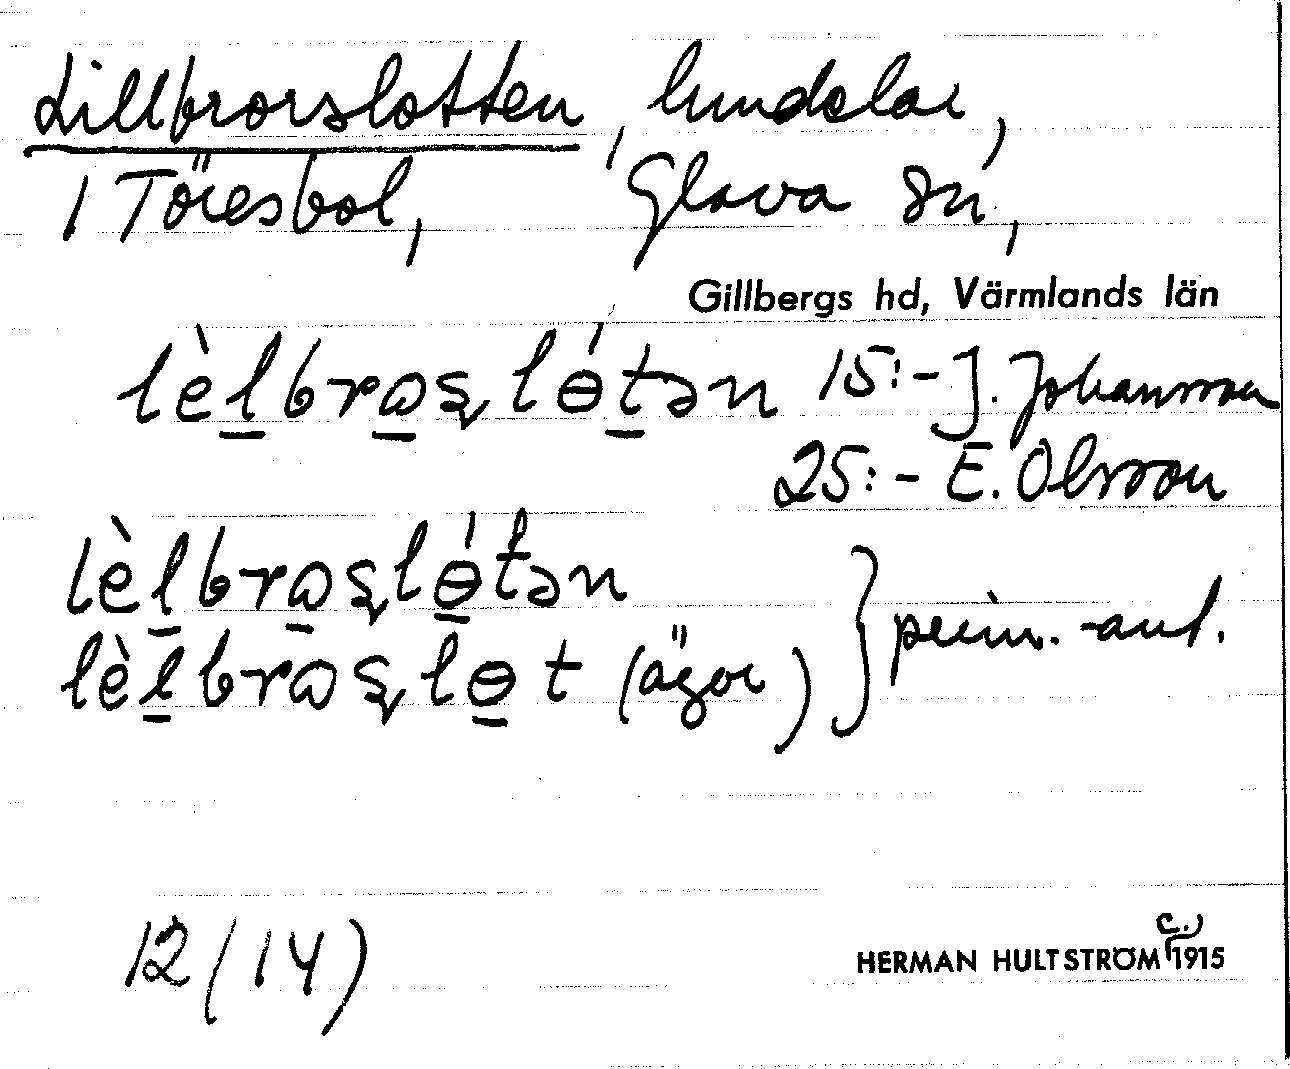 Lillbrorslotten, hemdelar,
i Töresbol, Glava sn,
Gillbergs hd, Värmlands län
lèlbrɷʂlɵ́tən 15:- J. Johansson
25:- E. Olsson
lèlbrɷʂlɵ́tən
lèlbrɷʂlɵt (ägor) } prim.-ant.
12 (14)
HERMAN HULTSTRÖM (c.) 1915